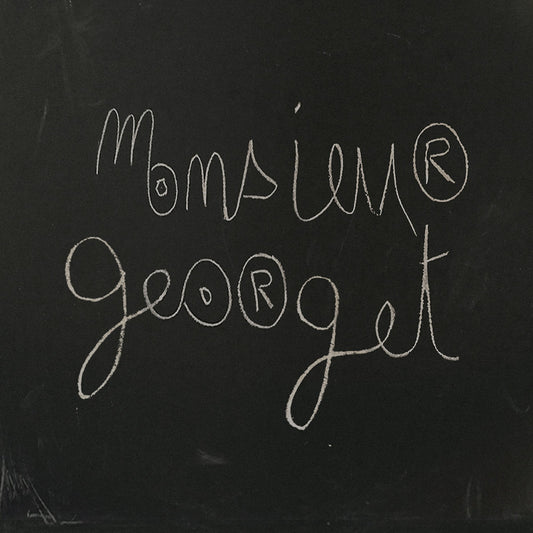 Monsieu®
geo®get